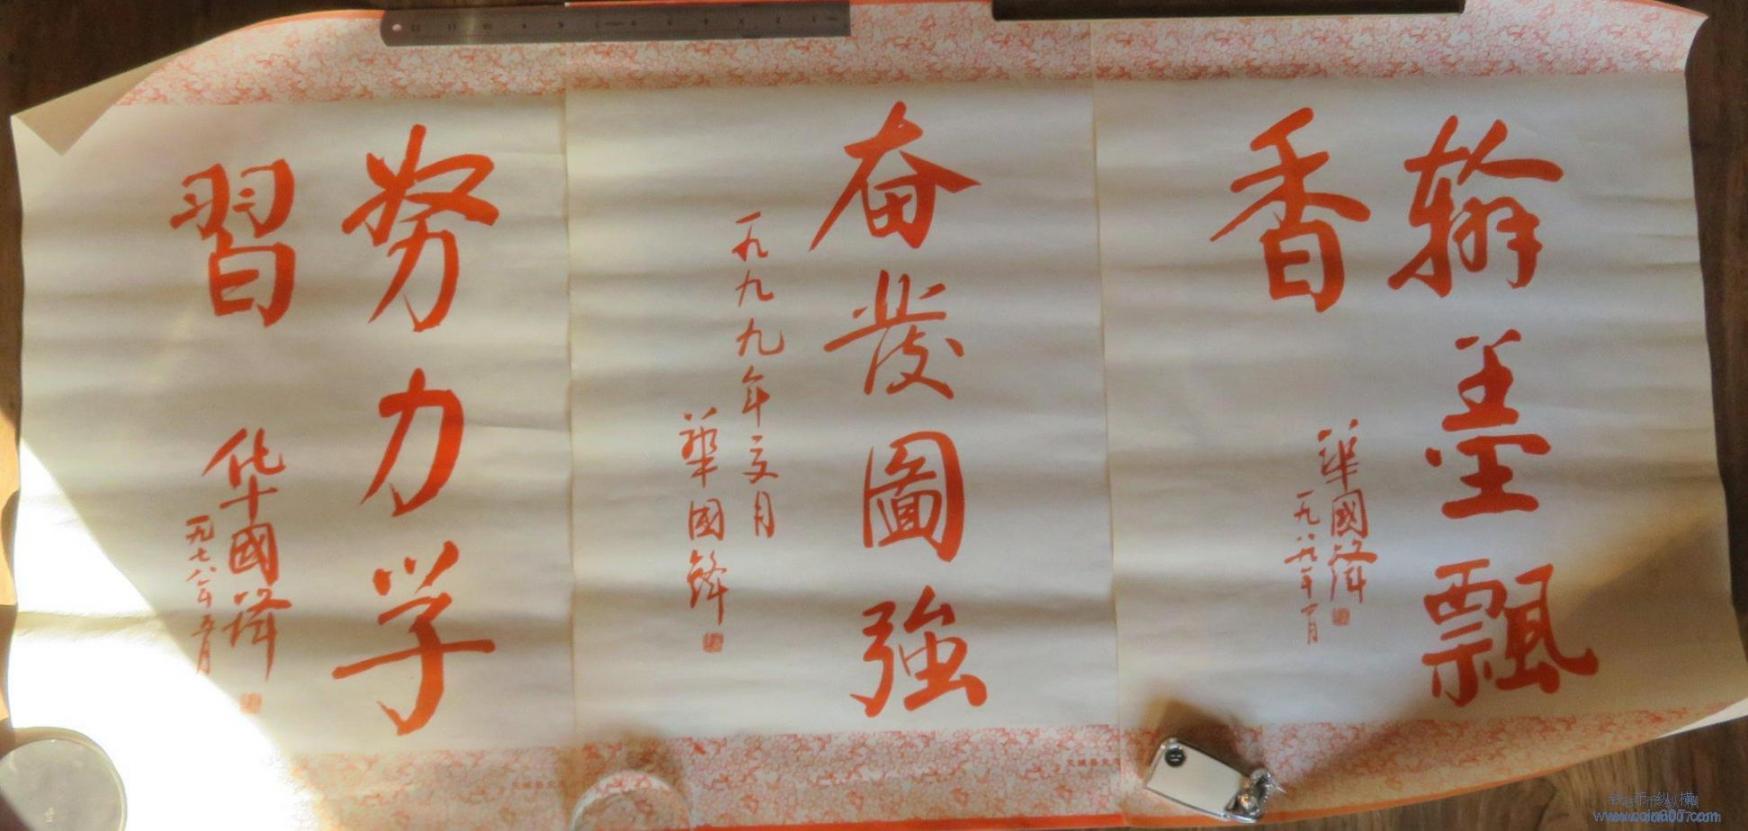 翰墨飘
香
華國鋒
一九八九年一月
奋发圖強
一九九九年五月
華國鋒
努力学
習
华國鋒
一九七八年五月
www.coin007.com